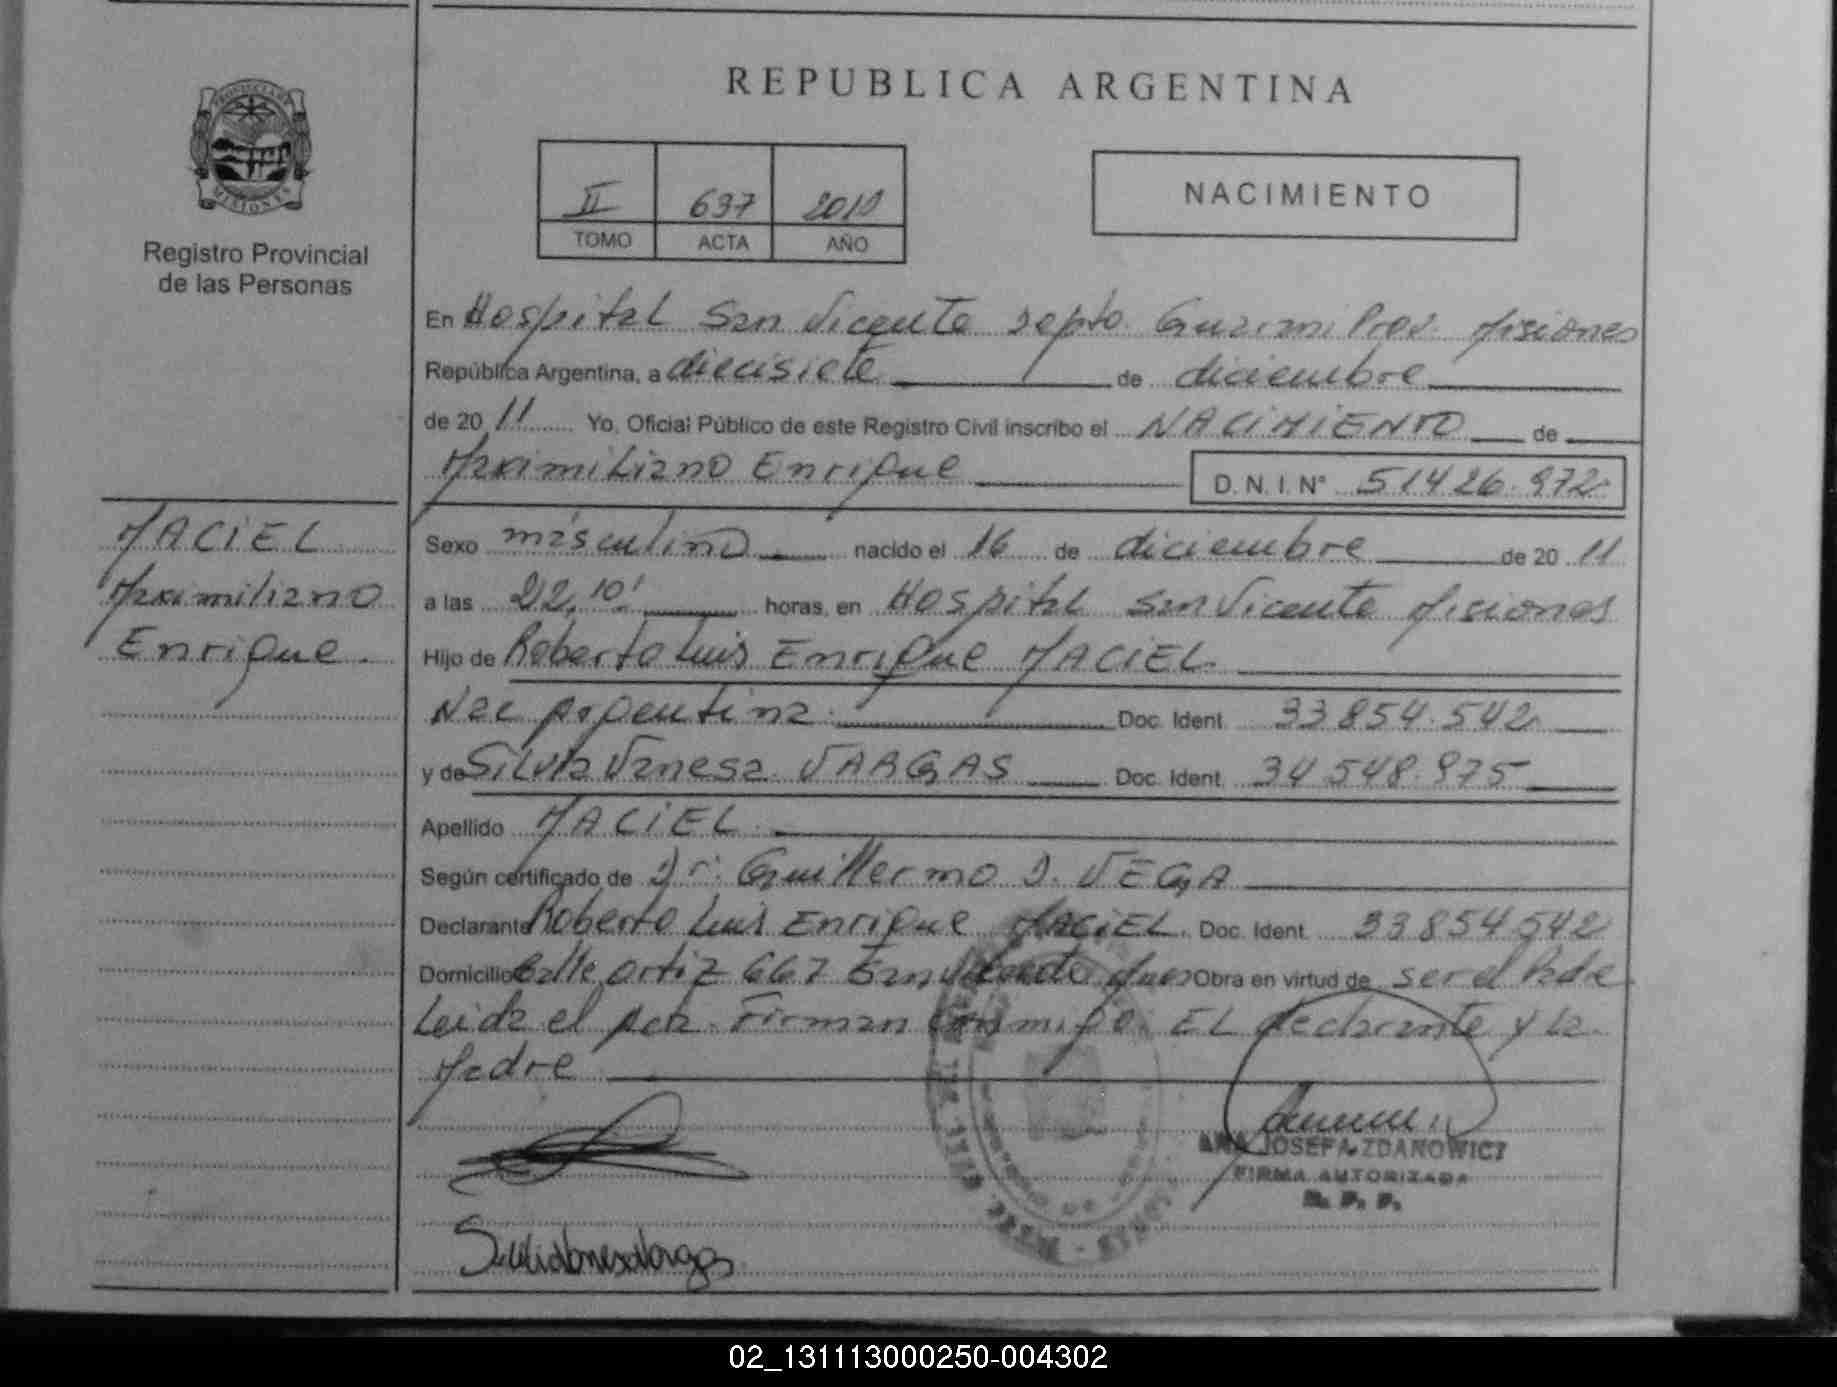 REPUBLICA ARGENTINA
PROVINCIA DE
MISIONES
Registro Provincial
de las Personas
II 637
TOMO ACTA AÑO
NACIMIENTO
En Hospital San Vicente Depto. Guarani Prov. Misiones
República Argentina, a diecisiete de diciembre
de 2011 Yo, Oficial Público de este Registro Civil inscribo el NACIMIENTO de
Maximiliano Enrique D.N.I. N° 51426.972
MACIEL
Maximiliano
Enrique.
Sexo masculino nacido el 16 de diciembre de 2011
a las 22,10' horas, en Hospital San Vicente Misiones
Hijo de Roberto Luis Enrique MACIEL.
Nac Argentina. Doc. Ident. 33854.542
y de Silvia Vanesa VARGAS Doc. Ident. 34548.975
Apellido MACIEL
Según certificado de Dr. Guillermo D. VEGA
Declarante Roberto Luis Enrique MACIEL. Doc. Ident. 33854542
Domicilio Calle Ortiz 667 San Vicente Obra en virtud de ser el Padre
Leida el acta. Firman conmigo. EL declarante y la
Madre
ANA JOSEFA ZDANOWICZ
FIRMA AUTORIZADA
R. P. P.
Silvia Vanesa Vargas
02_131113000250-004302